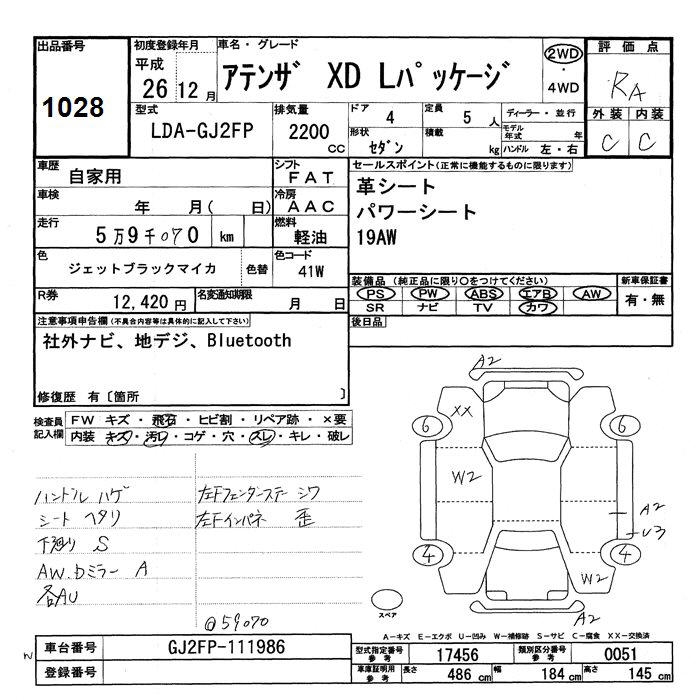 出品番号
1028
初度登録年月
平成
26 12月
車名・グレード
アテンザ XD Lパッケージ
2WD
・
4WD
評価点
RA
外装 内装
C C
型式
LDA-GJ2FP
排気量
2200
CC
ドア 4
定員 5 人
形状 セダン
積載 kg
ディーラー・並行
モデル年式 年
ハンドル 左・右
車歴 自家用
シフト FAT
車検 年 月( 日)
冷房 AAC
走行 5万9千070 km
燃料 軽油
色 ジェットブラックマイカ 色替
色コード 41W
R券 12,420円
名変通知期限 月 日
セールスポイント(正常に機能するものに限ります)
革シート
パワーシート
19AW
装備品(純正品に限り○をつけてください)
PS PW ABS エアB AW
SR ナビ TV カワ
新車保証書
有・無
後日品
注意事項申告欄(不具合内容等は具体的に記入して下さい)
社外ナビ、地デジ、Bluetooth
修復歴 有〔箇所 〕
検査員記入欄
FW キズ・飛石・ヒビ割・リペア跡・×要
内装 キズ・汚レ・コゲ・穴・スレ・キレ・破レ
ハンドル ハゲ
シート ヘタリ
下廻り S
AW.Dミラー A
各AU
左Fフェンダーステー シワ
左Fインパネ 歪
@59070
A2
XX
6
6
W2
A2
U3
4
4
W2
A2
スペア
A-キズ E-エクボ U-凹み W-補修跡 S-サビ C-腐食 XX-交換済
車台番号 GJ2FP-111986
登録番号
型式指定番号 参考 17456
類別区分番号 参考 0051
車庫証明用 参考 長さ 486 cm 幅 184 cm 高さ 145 cm